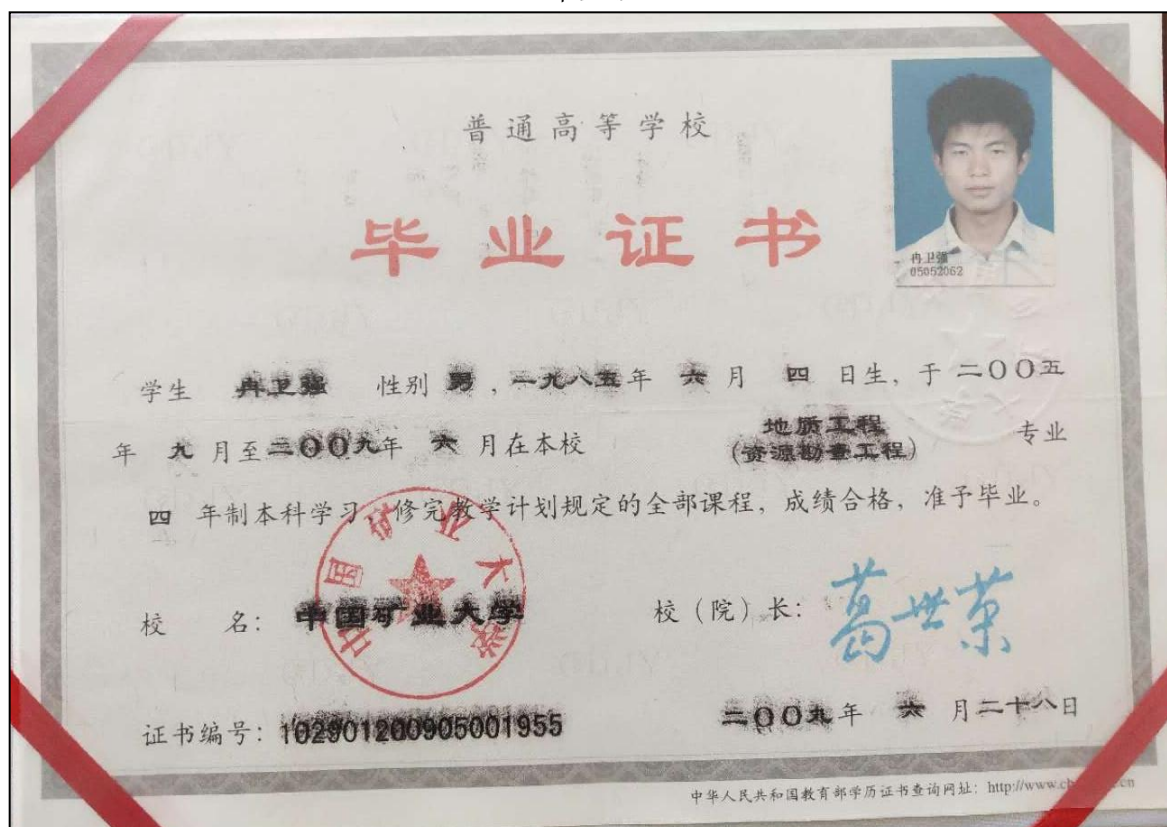 普通高等学校
毕业证书
冉卫强
05052062
学生 冉卫强 性别 男，一九八五年 六 月 四 日生，于二〇〇五
年 九 月至二〇〇九年 六 月在本校 地质工程 专业
(资源勘查工程)
四 年制本科学习，修完教学计划规定的全部课程，成绩合格，准予毕业。
校 名：中国矿业大学 校（院）长：葛世荣
证书编号：102901200905001955 二〇〇九年 六 月二十八日
中华人民共和国教育部学历证书查询网址：http://www.ch